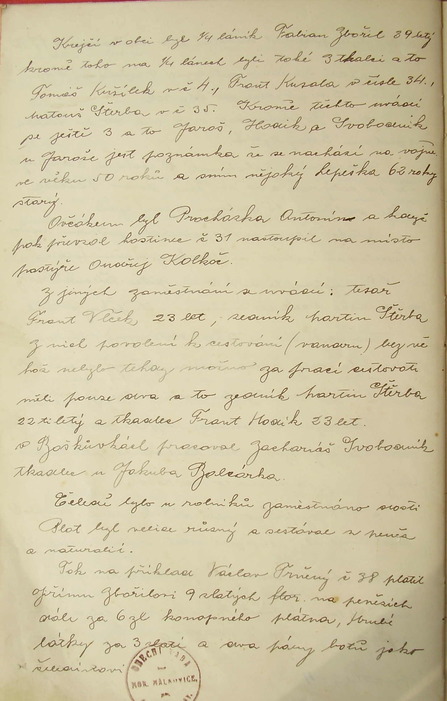 Krejčí v obci byl 1/4 láník Fabian Zbořil 39 letý
kromě toho na 1/4 lánech byli také 3 tkalci a to
Tomáš Kužílek v č 4., Frant Kusala v čísle 34.,
Matouš Štěrba v č 35. Kromě těchto uvádí
se ještě 3 a to Jaroš, Hodík a Svobodník
u Jaroše jest poznámka že se nachází na vojně
ve věku 50 roků a s ním nějaký Lepeška 62 roky
starý.
Ovčákem byl Procházka Antonín a když
pak převzal hostinec č 31 nastoupil na místo
pastýře Ondřej Kolkoč.
Z jiných zaměstnání se uvádí: tesař
Frant Vlček, 23 let, zedník Martin Štěrba
z nich povolení k cestování (vandru) bez ně
hož nebylo tehdy možno za prací cestovati
měli pouze dva a to zedník Martin Štěrba
22 ti letý a tkadlec Frant Hodík 23 let.
v Boškůvkách pracoval Zachariáš Svobodník
tkadlec u Jakuba Balcárka.
Čeledi bylo u rolníků zaměstnáno dosti
Plat byl velice různý a sestával z peněz
a naturalií.
Tak na příklad Václav Trněný č 38 platil
Zbořilovi 9 zlatých na penězích
dále za 6 zl konopného plátna, hrubé
látky za 3 zlaté a dva páry botů jako
OBECNÍ RADA
MOR. MÁLKOVICE,